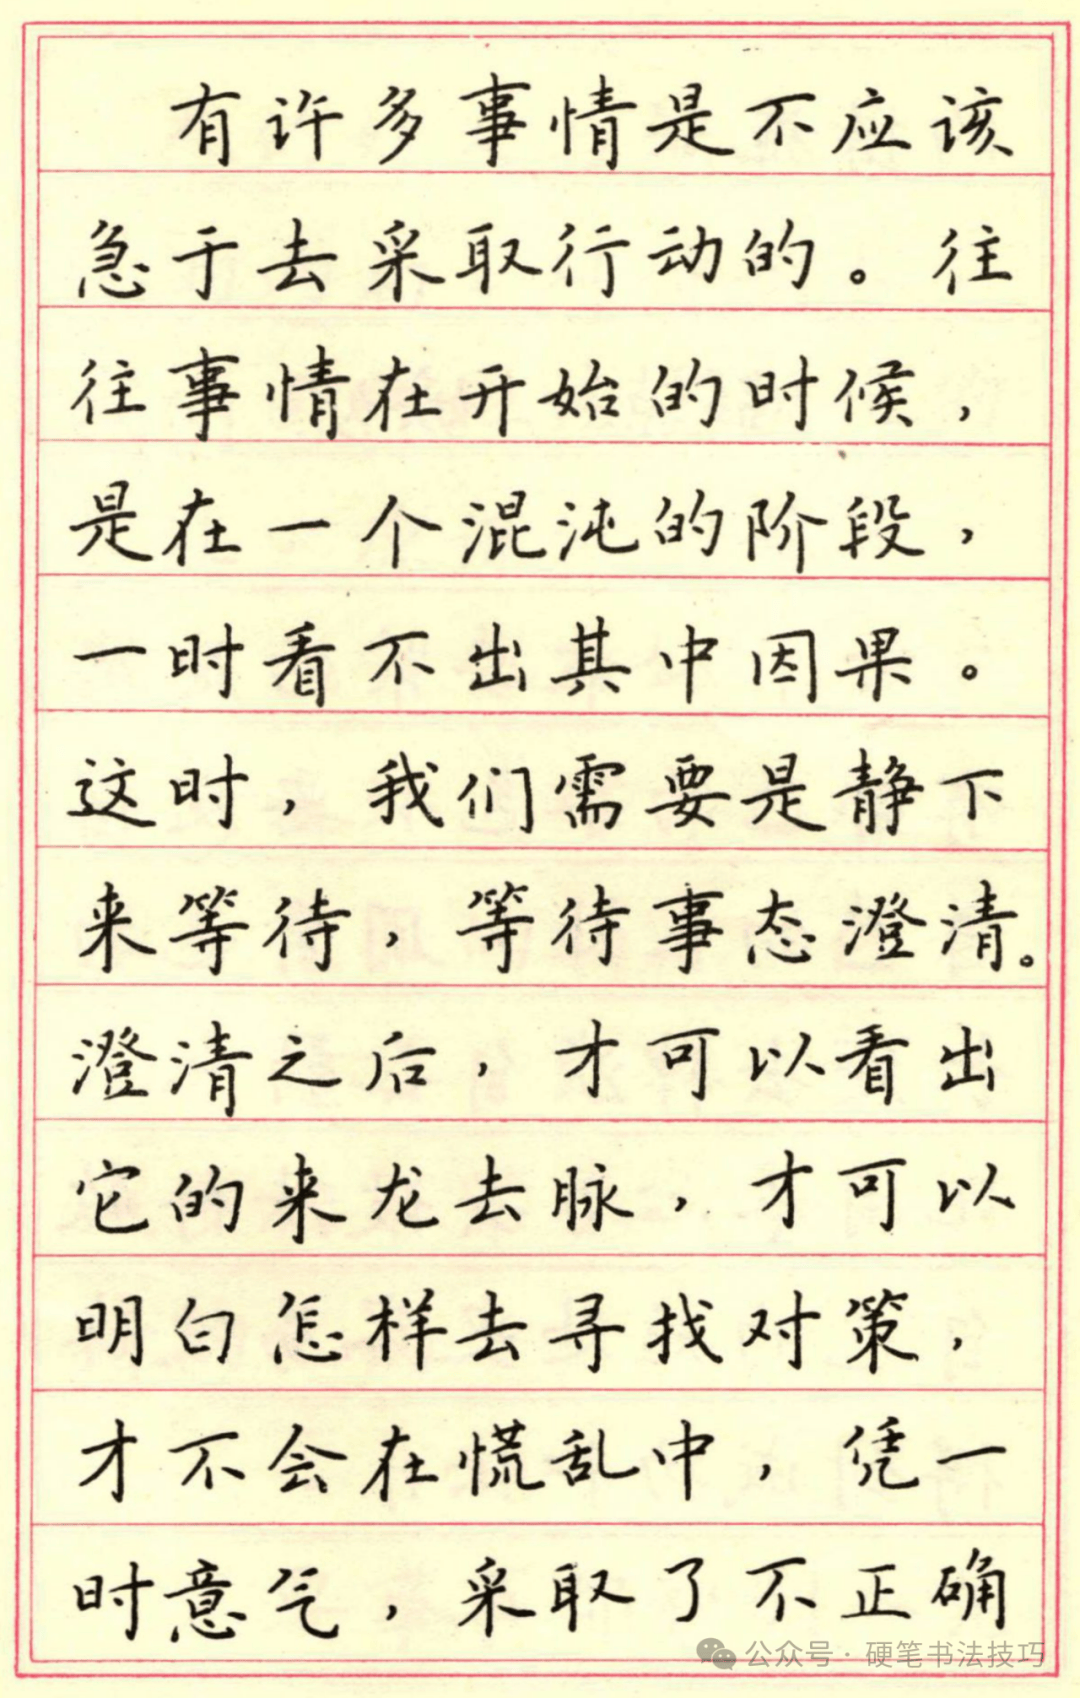 有许多事情是不应该
急于去采取行动的。往
往事情在开始的时候，
是在一个混沌的阶段，
一时看不出其中因果。
这时，我们需要是静下
来等待，等待事态澄清。
澄清之后，才可以看出
它的来龙去脉，才可以
明白怎样去寻找对策，
才不会在慌乱中，凭一
时意气，采取了不正确
公众号·硬笔书法技巧